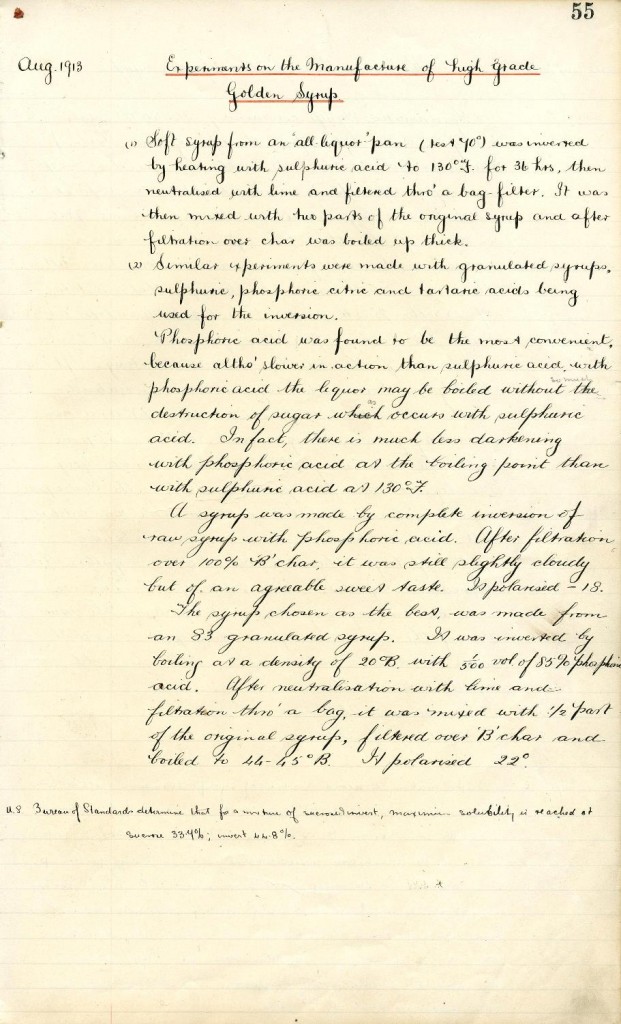 55
Aug. 1913
Experiments on the Manufacture of High Grade
Golden Syrup
(1) Soft syrup from an "all-liquor" pan (test 70°) was inverted
by heating with sulphuric acid to 130°F. for 36 hrs, then
neutralised with lime and filtered thro' a bag-filter. It was
then mixed with two parts of the original syrup and after
filtration over char was boiled up thick.
(2) Similar experiments were made with granulated syrups,
sulphuric, phosphoric citric and tartaric acids being
used for the inversion.
Phosphoric acid was found to be the most convenient,
because altho' slower in action than sulphuric acid, with
phosphoric acid the liquor may be boiled without the
destruction of sugar which as occurs with sulphuric
acid. In fact, there is much less darkening
with phosphoric acid at the boiling point than
with sulphuric acid at 130°F.
A syrup was made by complete inversion of
raw syrup with phosphoric acid. After filtration
over 100% 'B' char, it was still slightly cloudy
but of an agreeable sweet taste. It polarised - 18.
The syrup chosen as the best, was made from
an S3 granulated syrup. It was inverted by
boiling at a density of 20°B. with 1/500 vol of 85% phosphoric
acid. After neutralisation with lime and
filtration thro' a bag, it was mixed with 1/2 part
of the original syrup, filtered over 'B' char and
boiled to 44-45°B. It polarised 22°.
U.S. Bureau of Standards determine that for a mixture of sucrose & invert, maximum solubility is reached at
sucrose 33.4%; invert 44.8%.